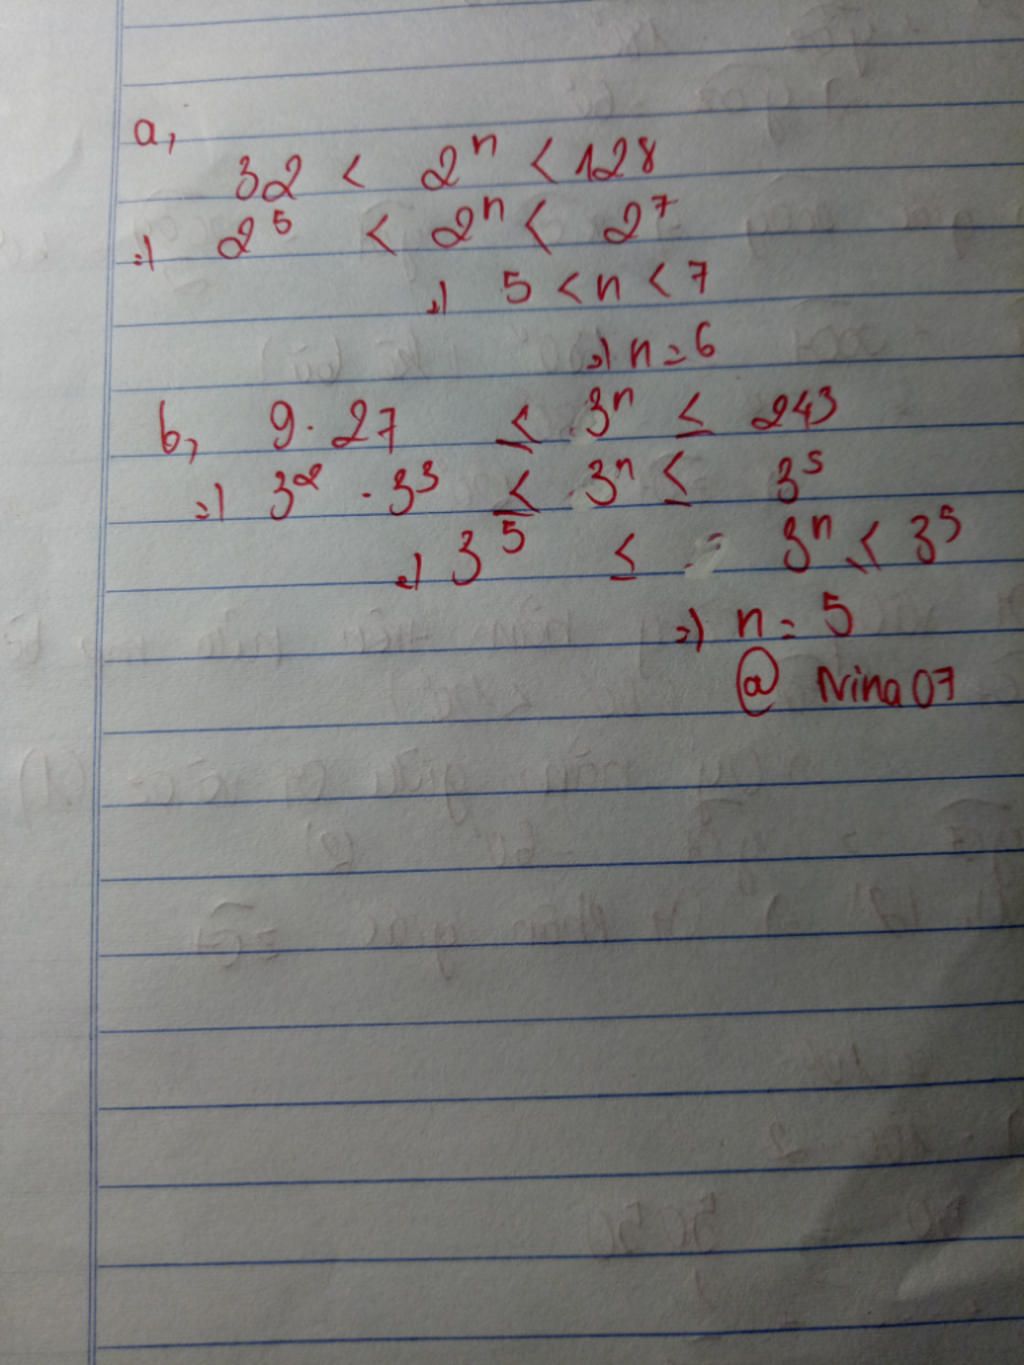 a,
32 < 2ⁿ < 128
=) 2⁵ < 2ⁿ < 2⁷
=) 5 < n < 7
=) n = 6
b, 9 . 27 ≤ 3ⁿ ≤ 243
=) 3² . 3³ ≤ 3ⁿ ≤ 3⁵
=) 3⁵ ≤ 3ⁿ ≤ 3⁵
=) n = 5
@ Nina07